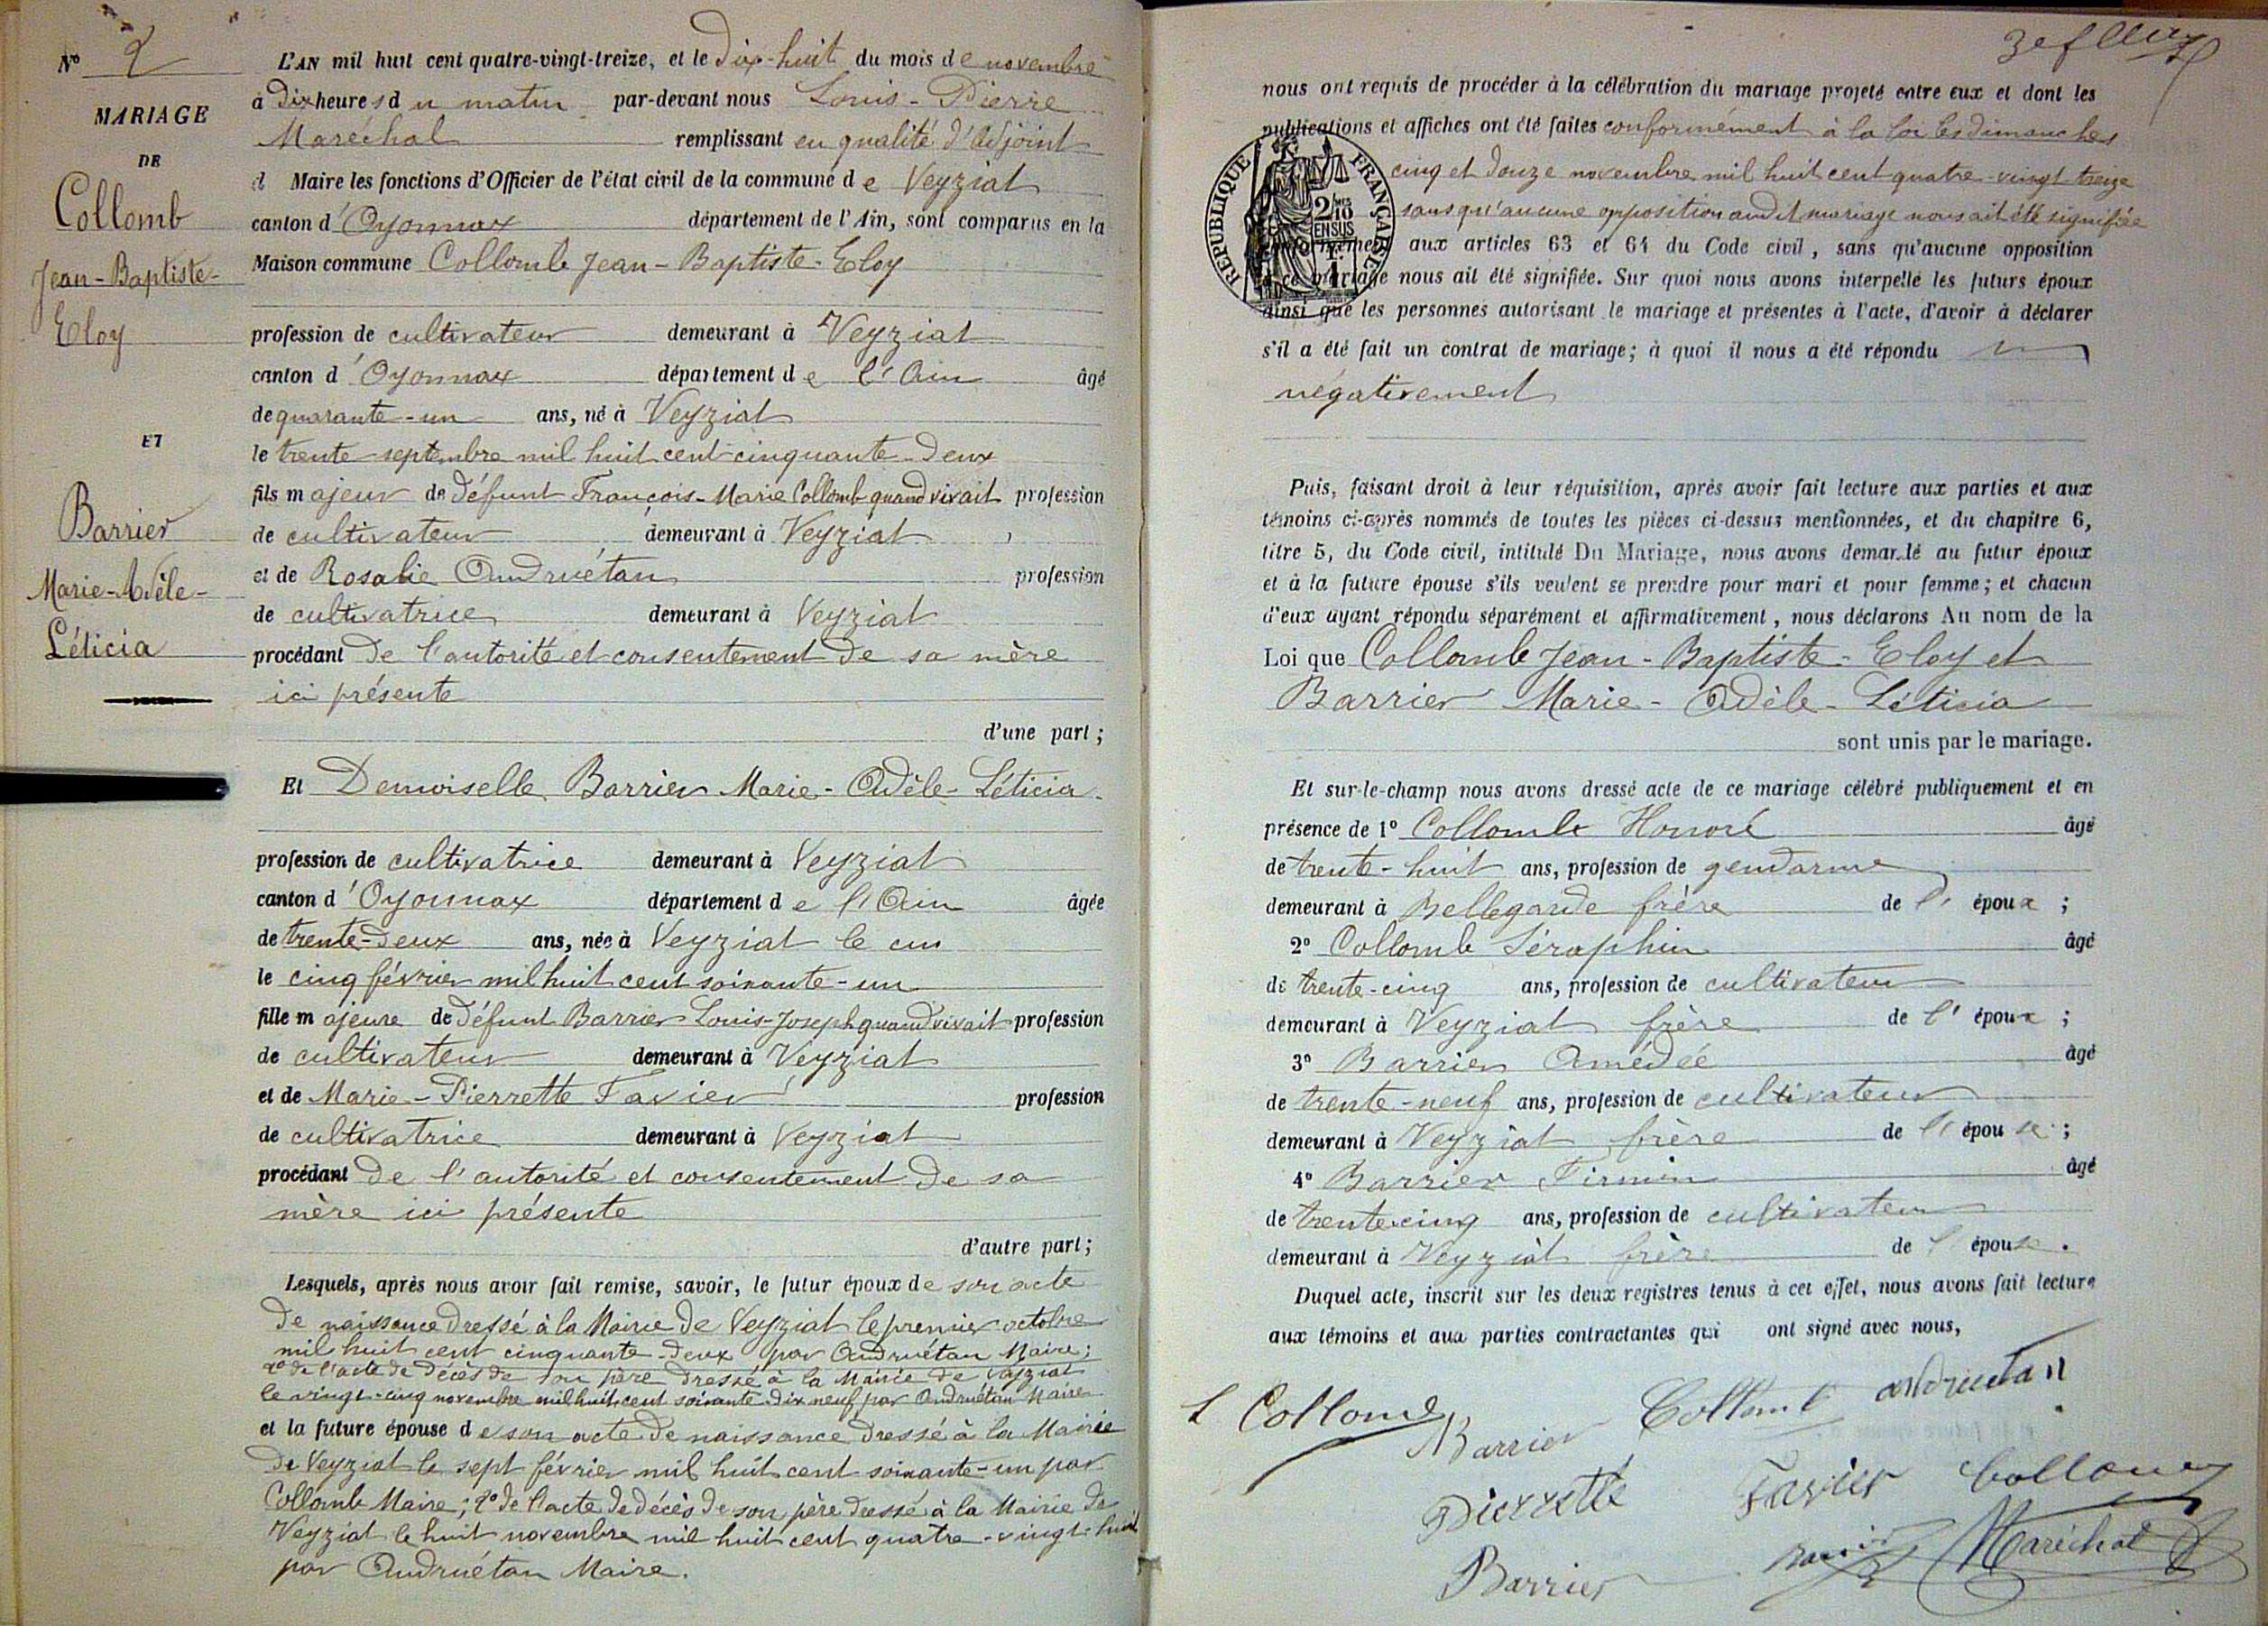 Nº 2
MARIAGE
DE
Collomb
Jean-Baptiste-
Eloy
ET
Barrier
Marie-Adèle-
Léticia
L'AN mil huit cent quatre-vingt-treize, et le Dix-huit du mois de novembre
à Dix heures du matin par-devant nous Louis-Pierre
Maréchal remplissant en qualité d'Adjoint
d Maire les fonctions d'Officier de l'état civil de la commune de Veyziat
canton d'Oyonnax département de l'Ain, sont comparus en la
Maison commune Collomb Jean-Baptiste-Eloy
profession de cultivateur demeurant à Veyziat
canton d'Oyonnax département de l'Ain âgé
de quarante-un ans, né à Veyziat
le trente septembre mil huit cent cinquante-deux
fils majeur de défunt François-Marie Collomb quand vivait profession
de cultivateur demeurant à Veyziat
et de Rosalie Andruétan profession
de cultivatrice demeurant à Veyziat
procédant de l'autorité et consentement de sa mère
ici présente
d'une part ;
Et Demoiselle Barrier Marie-Adèle-Léticia
profession de cultivatrice demeurant à Veyziat
canton d'Oyonnax département de l'Ain âgée
de trente-deux ans, née à Veyziat le cin
le cinq février mil huit cent soixante-un
fille majeure de défunt Barrier Louis-Joseph quand vivait profession
de cultivateur demeurant à Veyziat
et de Marie-Pierrette Favier profession
de cultivatrice demeurant à Veyziat
procédant de l'autorité et consentement de sa
mère ici présente
d'autre part ;
Lesquels, après nous avoir fait remise, savoir, le futur époux de son acte
de naissance dressé à la Mairie de Veyziat le premier octobre
mil huit cent cinquante-deux par Andruétan Maire ;
2º de l'acte de décès de son père dressé à la Mairie de Veyziat
le vingt-cinq novembre mil huit cent soixante-dix neuf par Andruétan Maire
et la future épouse de son acte de naissance dressé à la Mairie
de Veyziat le sept février mil huit cent soixante-un par
Collomb Maire ; 2º de l'acte de décès de son père dressé à la Mairie de
Veyziat le huit novembre mil huit cent quatre-vingt-huit
par Andruétan Maire.
nous ont requis de procéder à la célébration du mariage projeté entre eux et dont les
publications et affiches ont été faites conformément à la loi les dimanches
cinq et douze novembre mil huit cent quatre-vingt-treize
sans qu'aucune opposition audit mariage nous ait été signifiée
REPUBLIQUE FRANÇAISE
2/10
EN SUS
conformément aux articles 63 et 64 du Code civil, sans qu'aucune opposition
à ce mariage nous ait été signifiée. Sur quoi nous avons interpellé les futurs époux
ainsi que les personnes autorisant le mariage et présentes à l'acte, d'avoir à déclarer
s'il a été fait un contrat de mariage ; à quoi il nous a été répondu
négativement
Puis, faisant droit à leur réquisition, après avoir fait lecture aux parties et aux
témoins ci-après nommés de toutes les pièces ci-dessus mentionnées, et du chapitre 6,
titre 5, du Code civil, intitulé Du Mariage, nous avons demandé au futur époux
et à la future épouse s'ils veulent se prendre pour mari et pour femme ; et chacun
d'eux ayant répondu séparément et affirmativement, nous déclarons Au nom de la
Loi que Collomb Jean-Baptiste-Eloy et
Barrier Marie-Adèle-Léticia
sont unis par le mariage.
Et sur-le-champ nous avons dressé acte de ce mariage célébré publiquement et en
présence de 1º Collomb Honoré âgé
de trente-huit ans, profession de gendarme
demeurant à Bellegarde frère de l'époux ;
2º Collomb Séraphin âgé
de trente-cinq ans, profession de cultivateur
demeurant à Veyziat frère de l'époux ;
3º Barrier Amédée âgé
de trente-neuf ans, profession de cultivateur
demeurant à Veyziat frère de l'épouse ;
4º Barrier Firmin âgé
de trente-cinq ans, profession de cultivateur
demeurant à Veyziat frère de l'épouse.
Duquel acte, inscrit sur les deux registres tenus à cet effet, nous avons fait lecture
aux témoins et aux parties contractantes qui ont signé avec nous,
Collomb Barrier Collomb andruetan
Pierrette Favier Collomb
Barrier Barrier Maréchal